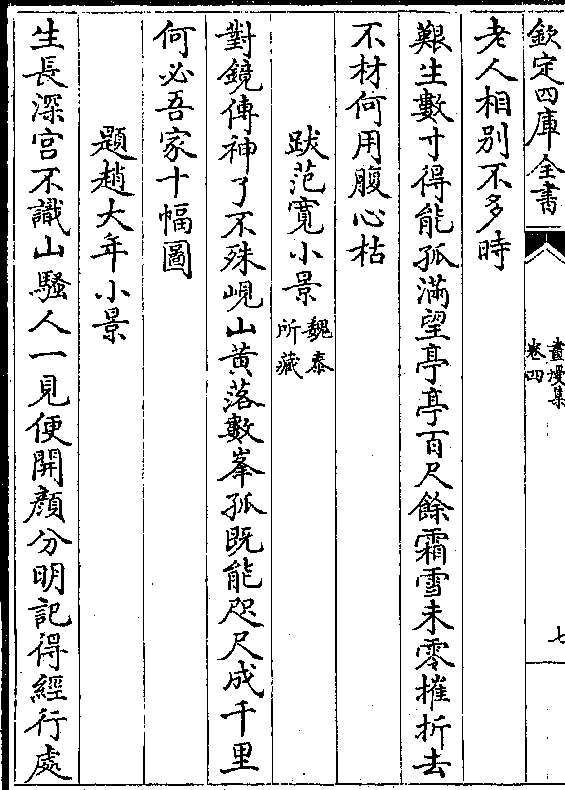 欽定四庫全書
畫墁集
卷四
七
老人相别不多時
艱生數寸得能孤滿望亭亭百尺餘霜雪未零摧折去
不材何用腹心枯
跋范寛小景魏泰所藏
對鏡傳神了不殊峴山黄落數峯孤既能咫尺成千里
何必吾家十幅圖
題趙大年小景
生長深宫不識山騷人一見便開顔分明記得經行處